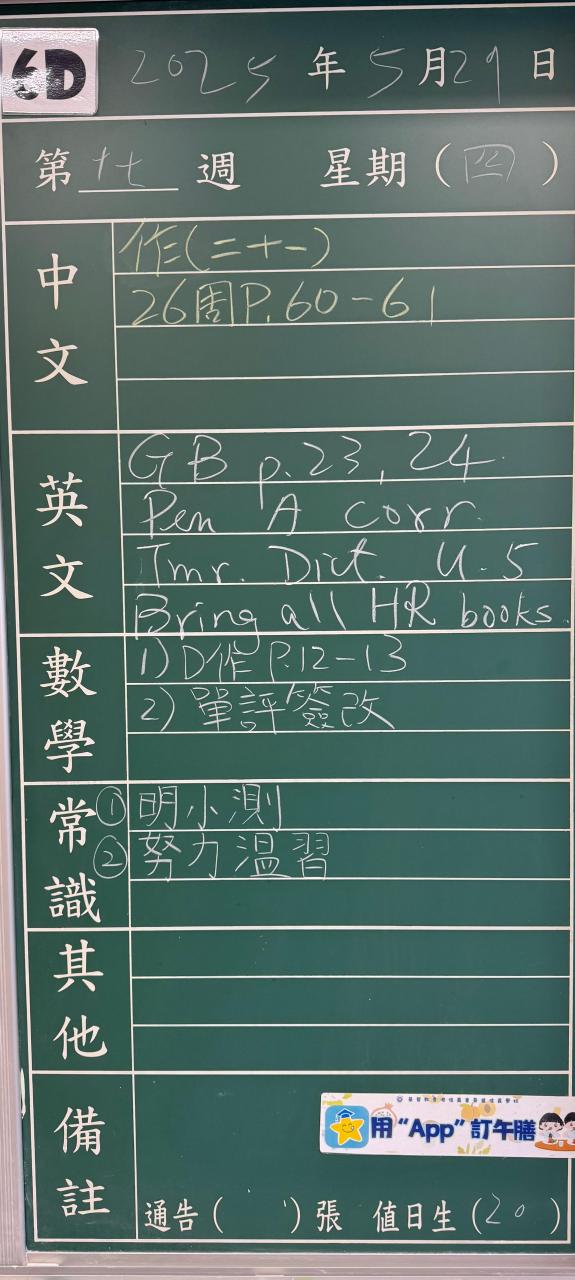 6D
2025 年 5 月 29 日
第 十七 週 星期 ( 四 )
中文
作(二十一)
26周P.60-61
英文
GB p.23, 24
Pen A corr.
Tmr. Dict. U.5
Bring all HR books.
數學
1) D作 P.12-13
2) 單評簽改
常識
① 明小測
② 努力溫習
其他
備註
用“App”訂午膳
通告 ( ) 張 值日生 (20 )